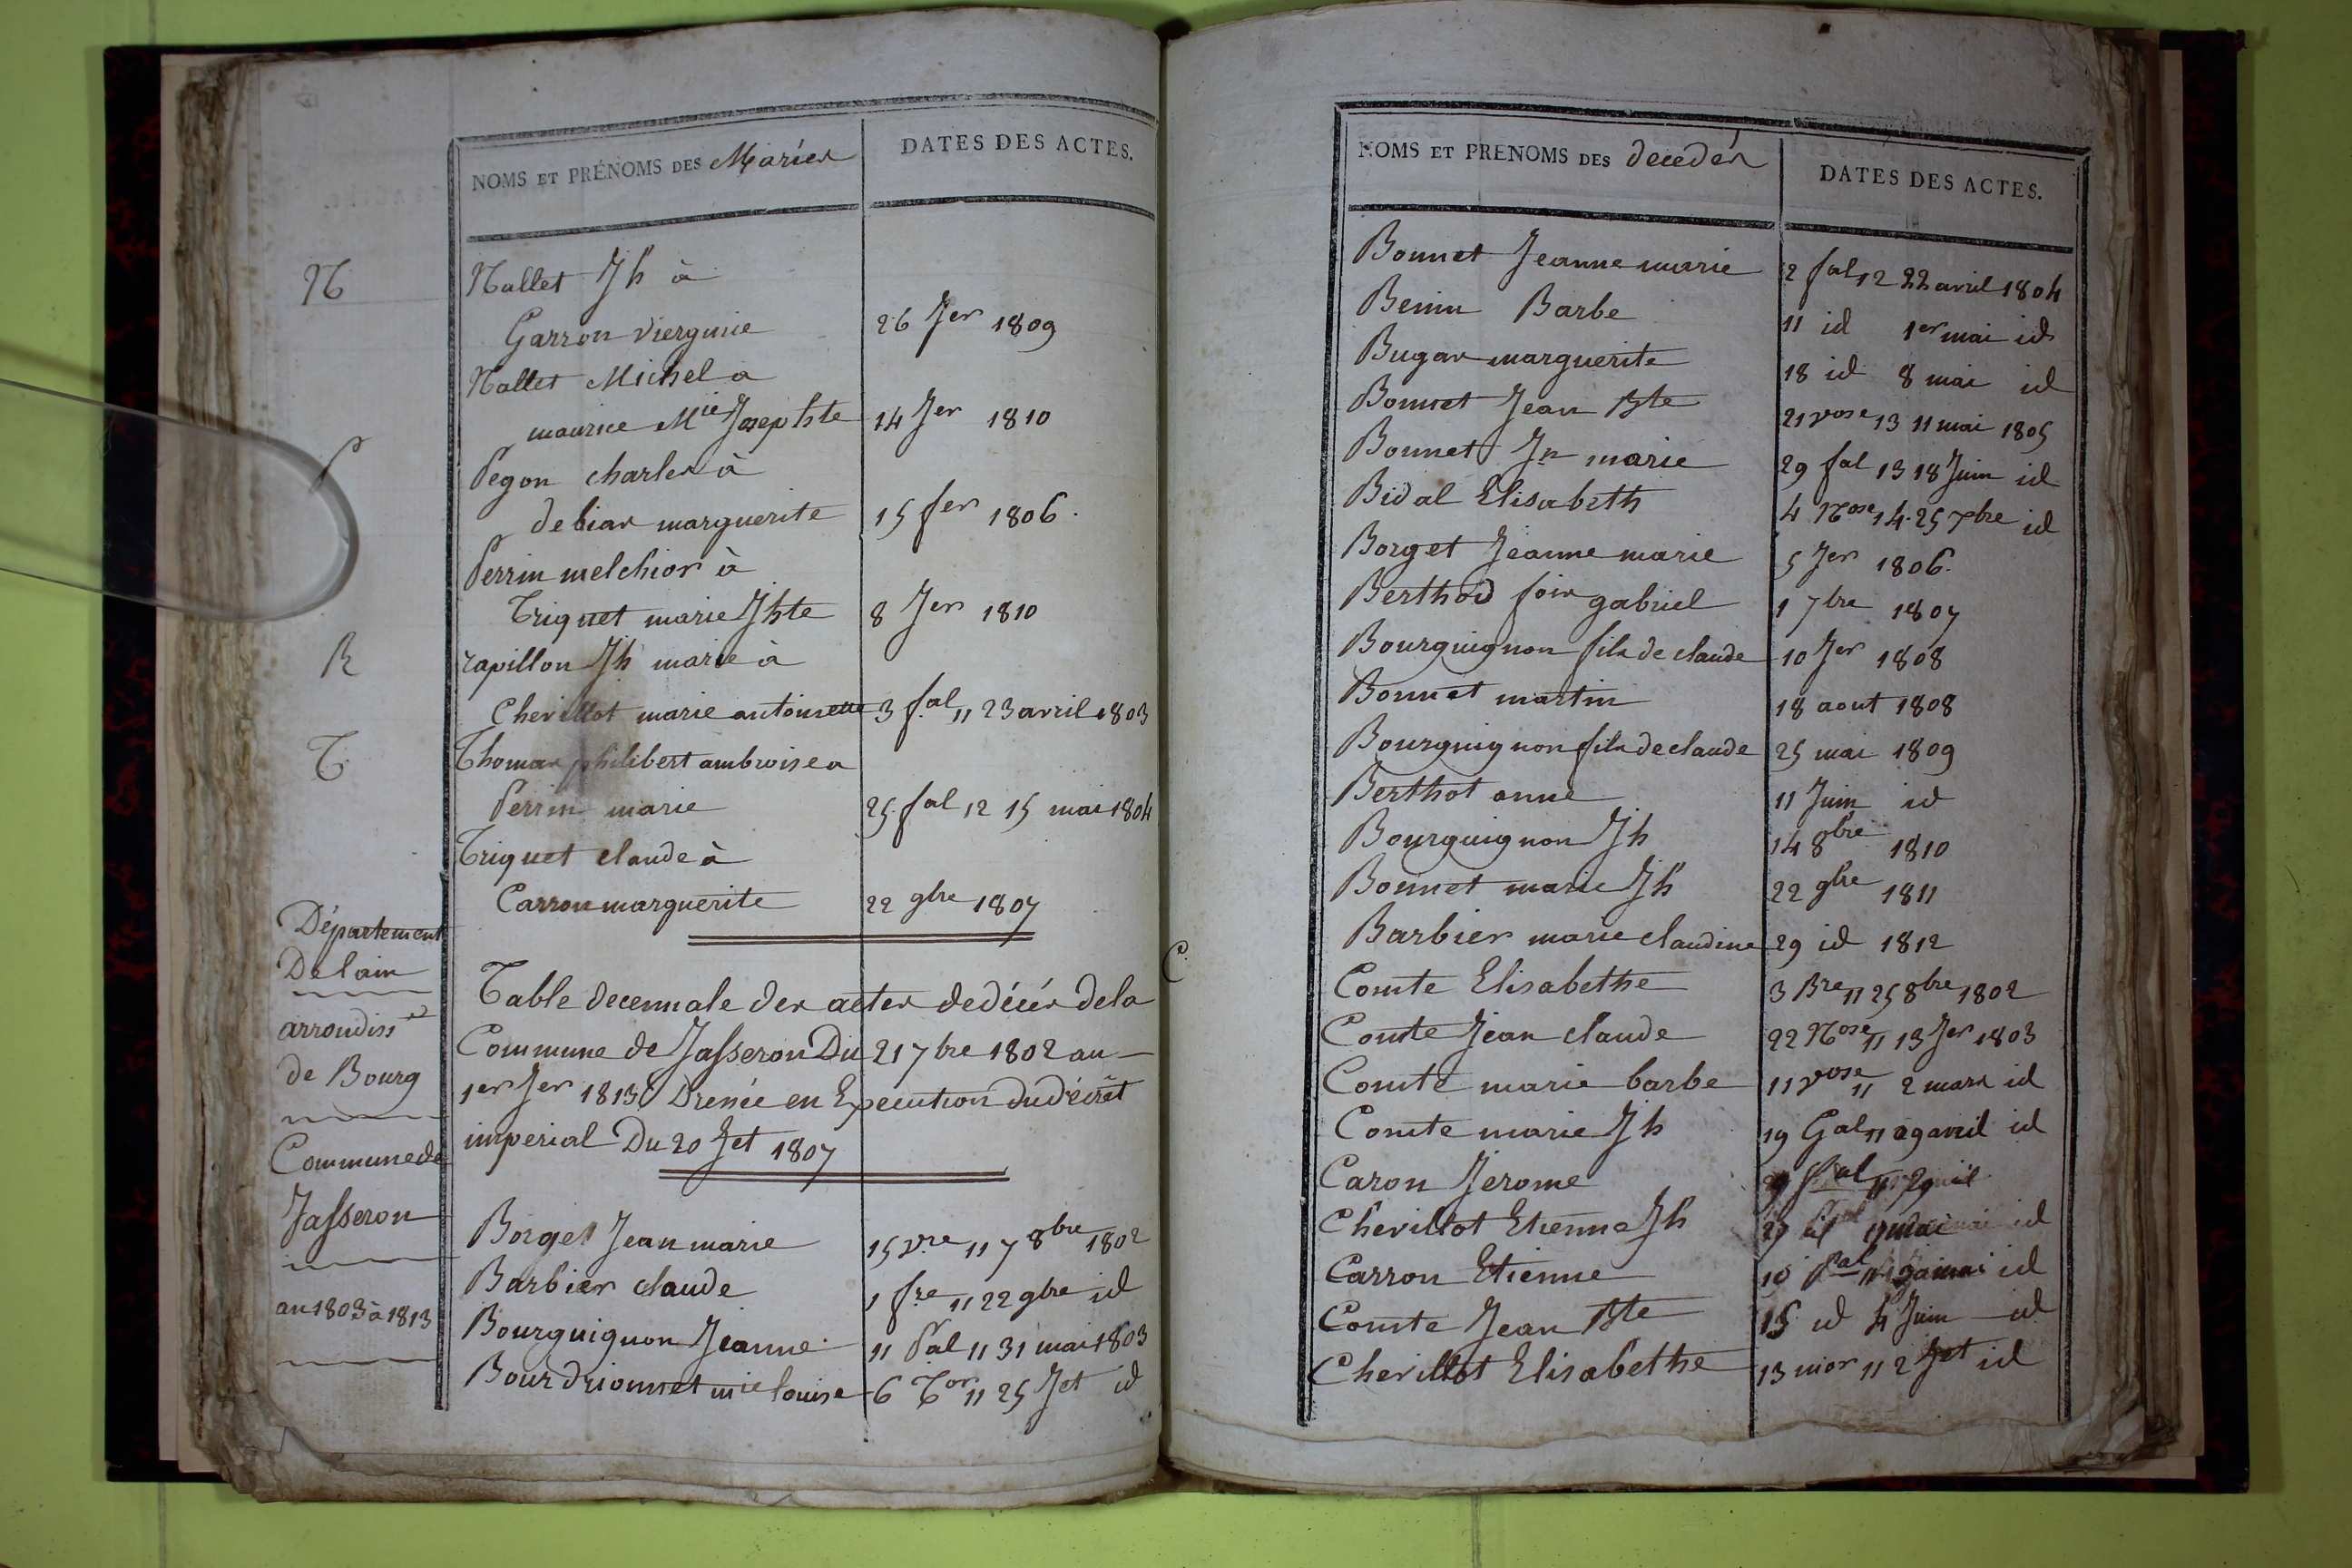 NOMS ET PRÉNOMS DES Mariés
DATES DES ACTES.
N
Nallet Jh à
Garron vierginie 26 Jer 1809
Nallet Michel a
maurice Mie Josephte 14 Jer 1810
P
Pegon charles à
debiar marguerite 15 fer 1806.
Perrin melchior à
Triquet marie Jhte 8 Jer 1810
R
rapillon Jh marie à
Chevillot marie antoinette 3 fal 11 23 avril 1803
T
Thomas philibert ambroise a
Perrin marie 25 fal 12 15 mai 1804
Triquet claude à
Carron marguerite 22 9bre 1807
Département
De lain
arrondisst
de Bourg
Commune de
Jasseron
an 1803 à 1813
Table decennale des actes de décès de la
Commune de Jasseron Du 21 7bre 1802 au
1er Jer 1813 Dressée en Execution du décret
imperial Du 20 Jet 1807
Borget Jean marie 15 vre 11 7 8bre 1802
Barbier claude 1 fre 11 22 9bre id
Bourguignon Jeanne 11 Pal 11 31 mai 1803
Bourdrionnet mie louise 6 Tor 11 25 Jet id
NOMS ET PRENOMS DES decedés
DATES DES ACTES.
Bonnet Jeanne marie 2 fal 12 22 avril 1804
Benin Barbe 11 id 1er mai id
Bugar marguerite 18 id 8 mai id
Bonnet Jean Bte 21 vose 13 11 mai 1805
Bonnet Jn marie 29 fal 13 18 Juin id
Bidal Elisabeth 4 Nose 14 25 7bre id
Borget Jeanne marie 5 Jer 1806.
Berthod fois gabriel 1 7bre 1807
Bourguignon fils de claude 10 Jer 1808
Bonnet martin 18 aout 1808
Bourguignon fils de claude 25 mai 1809
Berthot anne 11 Juin id
Bourguignon Jh 14 8bre 1810
Bonnet marie Jh 22 9bre 1811
Barbier marie claudine 29 id 1812
C
Comte Elisabethe 3 Bre 11 25 8bre 1802
Comte Jean claude 22 Nose 11 13 Jer 1803
Comte marie barbe 11 vose 11 2 mars id
Comte marie Jh 19 Gal 11 09 avril id
Caron Jerome
Chevillot Etienne Jh id
Carron Etienne 10 Pal mai id
Comte Jean Bte 15 id 4 Juin id
Chevillot Elisabethe 13 mor 11 2 Jet id